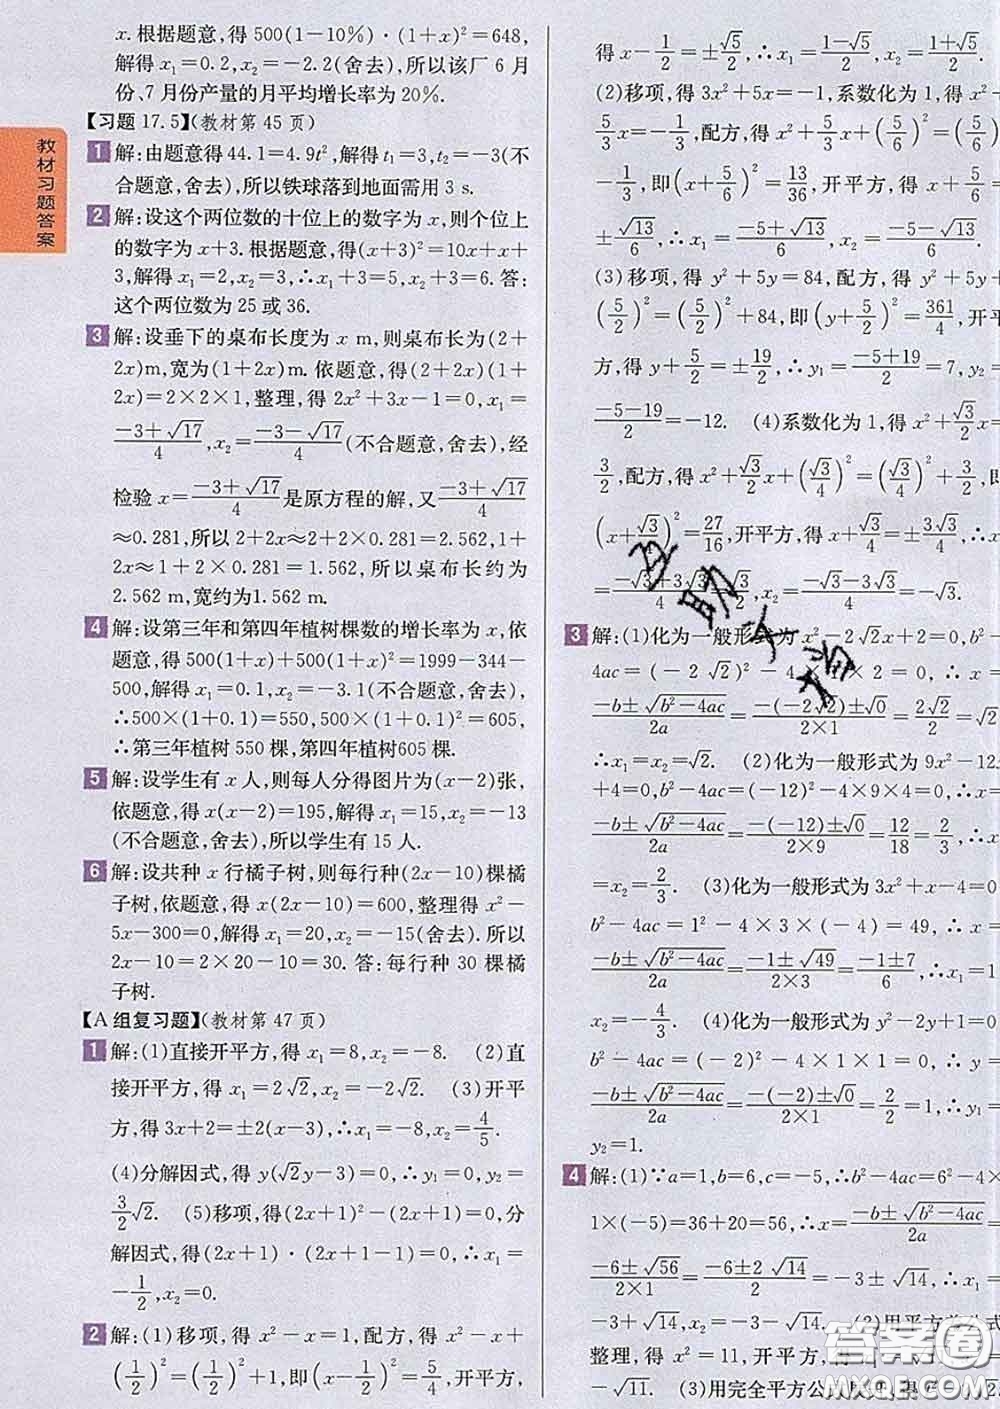 x. 根据题意,得 500(1-10%)·(1+x)²=648,
解得 x₁=0.2,x₂=-2.2(舍去),所以该厂 6 月
份、7 月份产量的月平均增长率为 20%.
【习题 17.5】(教材第 45 页)
1 解:由题意得 44.1=4.9t²,解得 t₁=3,t₂=-3(不
合题意,舍去),所以铁球落到地面需用 3 s.
2 解:设这个两位数的十位上的数字为 x,则个位上
的数字为 x+3. 根据题意,得(x+3)²=10x+x+
3,解得 x₁=2,x₂=3,∴x₁+3=5,x₂+3=6. 答:
这个两位数为 25 或 36.
3 解:设垂下的桌布长度为 x m,则桌布长为(2+
2x)m,宽为(1+2x)m. 依题意,得(2+2x)(1+
2x)=2×2×1,整理,得 2x²+3x-1=0,x₁=
(-3+√17)/4,x₂=(-3-√17)/4(不合题意,舍去),经
检验 x=(-3+√17)/4是原方程的解,又(-3+√17)/4
≈0.281,所以 2+2x≈2+2×0.281=2.562,1+
2x≈1+2×0.281=1.562,所以桌布长约为
2.562 m,宽约为1.562 m.
4 解:设第三年和第四年植树棵数的增长率为 x,依
题意,得 500(1+x)+500(1+x)²=1999-344-
500,解得 x₁=0.1,x₂=-3.1(不合题意,舍去),
∴500×(1+0.1)=550,500×(1+0.1)²=605,
∴第三年植树 550 棵,第四年植树605 棵.
5 解:设学生有 x 人,则每人分得图片为(x-2)张,
依题意,得 x(x-2)=195,解得 x₁=15,x₂=-13
(不合题意,舍去),所以学生有 15 人.
6 解:设共种 x 行橘子树,则每行种(2x-10)棵橘
子树,依题意,得 x(2x-10)=600,整理得 x²-
5x-300=0,解得 x₁=20,x₂=-15(舍去). 所以
2x-10=2×20-10=30. 答:每行种 30 棵橘
子树.
【A 组复习题】(教材第 47 页)
1 解:(1)直接开平方,得 x₁=8,x₂=-8. (2)直
接开平方,得 x₁=2√2,x₂=-2√2. (3)开平
方,得 3x+2=±2(x-3),∴x₁=-8,x₂=4/5.
(4)分解因式,得 y(√2y-3)=0,∴y₁=0,y₂=
3/2√2. (5)移项,得(2x+1)²-(2x+1)=0,分
解因式,得(2x+1)·(2x+1-1)=0,∴x₁=
-1/2,x₂=0.
2 解:(1)移项,得 x²-x=1,配方,得 x²-x+
(1/2)²=(1/2)²+1,即(x-1/2)²=5/4,开平方,
教材习题答案
得 x-1/2=±√5/2,∴x₁=(1-√5)/2,x₂=(1+√5)/2.
(2)移项,得 3x²+5x=-1,系数化为 1,得 x²+
5/3x=-1/3,配方,得 x²+5/3x+(5/6)²=(5/6)²
-1/3,即(x+5/6)²=13/36,开平方,得 x+5/6=
±√13/6,∴x₁=(-5+√13)/6,x₂=(-5-√13)/6.
(3)移项,得 y²+5y=84,配方,得 y²+5y+
(5/2)²=(5/2)²+84,即(y+5/2)²=361/4,开平
方,得 y+5/2=±19/2,∴y₁=(-5+19)/2=7,y₂=
(-5-19)/2=-12. (4)系数化为 1,得 x²+√3/2
3/2,配方,得 x²+√3/2x+(√3/4)²=(√3/4)²+3/2,
(x+√3/4)²=27/16,开平方,得 x+√3/4=±3√3/4,
=(-√3+3√3)/4=√3/2,x₂=(-√3-3√3)/4=-√3.
3 解:(1)化为一般形式为 x²-2√2x+2=0,b²-
4ac=(-2√2)²-4××2=0,∴x=
(-b±√(b²-4ac))/2a=(-(-2√2)±√0)/(2×1)=2√2/2=√2
∴x₁=x₂=√2. (2)化为一般形式为 9x²-12
+4=0,b²-4ac=(-12)²-4×9×4=0,∴x
(-b±√(b²-4ac))/2a=(-(-12)±√0)/(2×9)=12/18=2/3,∴x₁
=x₂=2/3. (3)化为一般形式为 3x²+x-4=0
b²-4ac=1²-4×3×(-4)=49,∴x=
(-b±√(b²-4ac))/2a=(-1±√49)/(2×3)=(-1±7)/6,∴x₁=1
x₂=-4/3. (4)化为一般形式为 y²-2y+1=0
b²-4ac=(-2)²-4×1×1=0,∴y=
(-b±√(b²-4ac))/2a=(-(-2)±√0)/(2×1)=2/2=1,∴y₁=
y₂=1.
4 解:(1)∵a=1,b=6,c=-5,∴b²-4ac=6²-4×
1×(-5)=36+20=56,∴x=(-b±√(b²-4ac))/2a
(-6±√56)/(2×1)=(-6±2√14)/2=-3±√14,∴x₁=
-3+√14,x₂=-3-√14. (2)用平方
整理,得 x²=11,开平方,得
-√11. (3)用完全平方公
答案圈
MXQE.COM